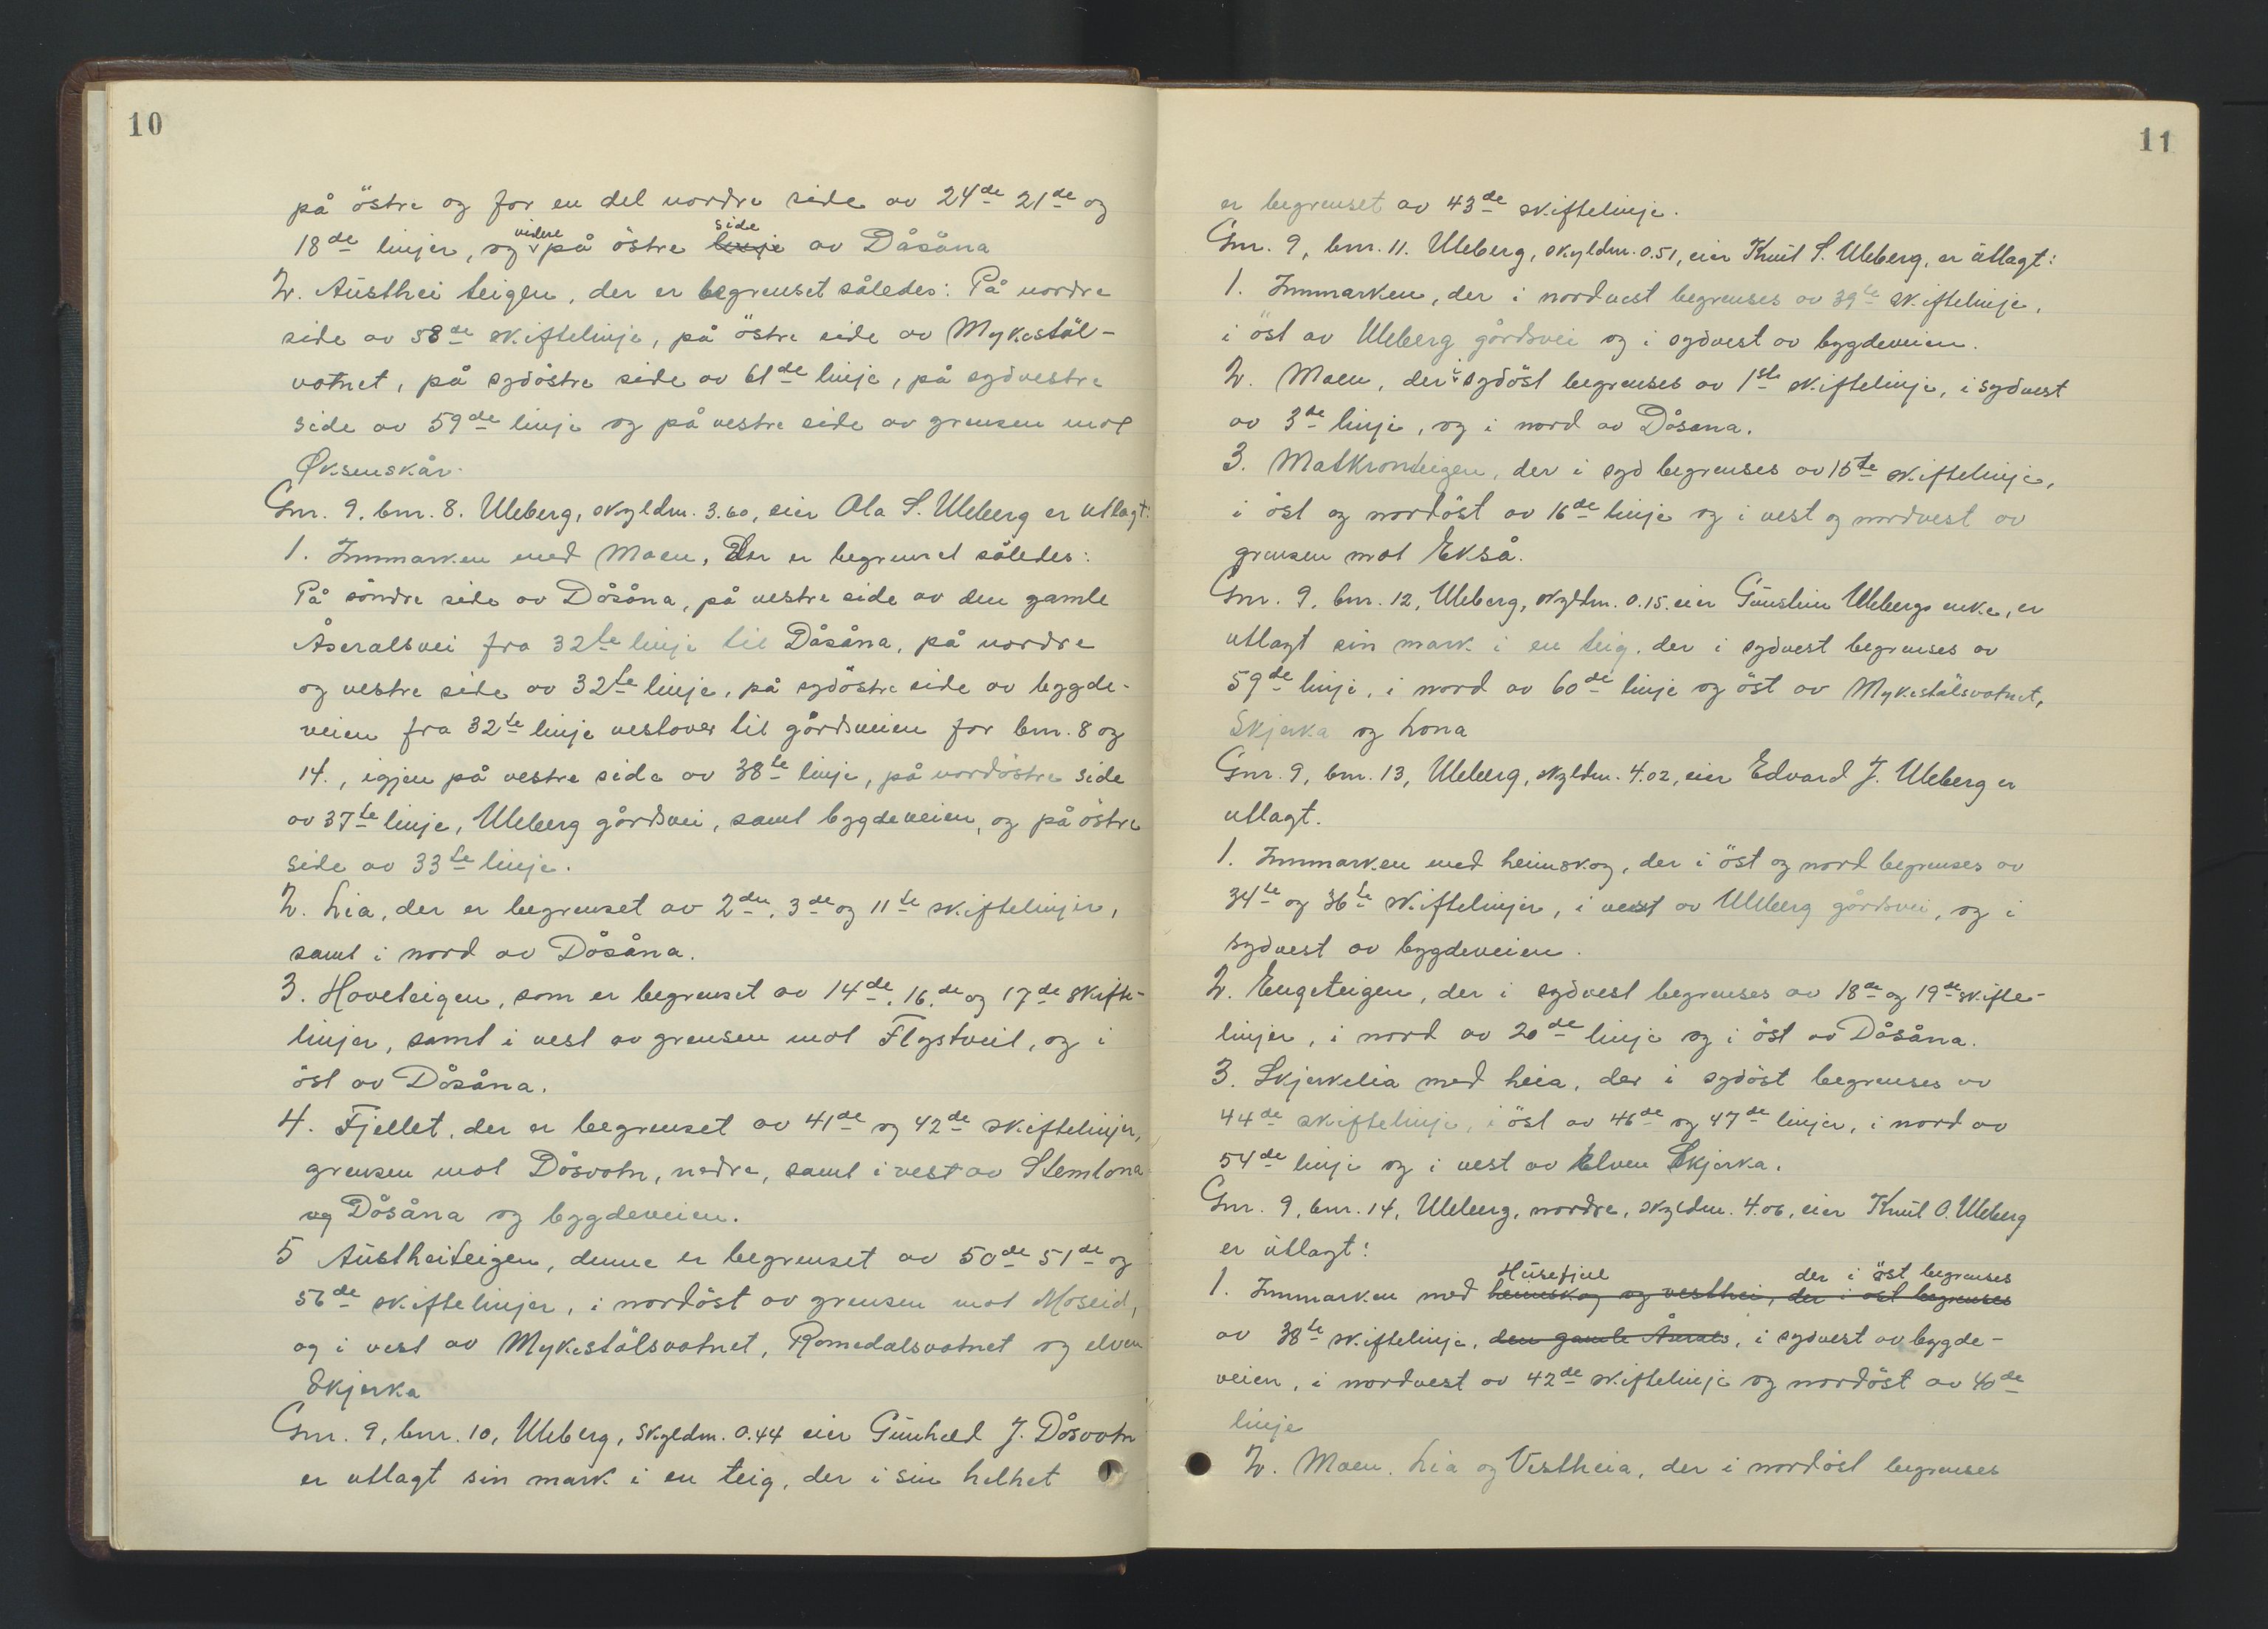 10
på östre og for en del nordre side av 24de 21de og
18de linjer, og videre på östre linje side av Dåsåna
2. Austhei teigen, der er begrenset således: På nordre
side av 58de skiftelinje, på östre side av Mykestöl-
votnet, på sydöstre side av 61de linje, på sydvestre
side av 59de linje og på vestre side av grensen mot
Øksenskår.
Gnr. 9, bnr. 8. Uleberg, skyldm. 3.60, eier Ola S. Uleberg er utlagt:
1. Innmarken med Moen, Der er begrenset således:
På söndre side av Dåsåna, på vestre side av den gamle
Åseralsvei fra 32te linje til Dåsåna, på nordre
og vestre side av 32te linje, på sydöstre side av bygde-
veien fra 32te linje vestover til gårdsveien for bnr. 8 og
14., igjen på vestre side av 38te linje, på nordöstre side
av 37te linje, Uleberg gårdsvei, samt bygdeveien, og på östre
side av 33te linje.
2. Lia, der er begrenset av 2den, 3de og 11te skiftelinjer,
samt i nord av Dåsåna.
3. Hoveteigen, som er begrenset av 14de, 16.de og 17de skifte-
linjer, samt i vest av grensen mot Flystveit, og i
öst av Dåsåna.
4. Fjellet, der er begrenset av 41de og 42de skiftelinjer,
grensen mot Dåsvotn, nedre, samt i vest av Stemlona
og Dåsåna og bygdeveien.
5 Austheiteigen, denne er begrenset av 50de 51de og
56de skiftelinjer, i nordöst av grensen mot Moseid,
og i vest av Mykestölsvotnet, Romedalsvotnet og elven
Skjerka
Gnr. 9, bnr. 10, Uleberg, skyldm. 0.44 eier Gunhild J. Dåsvotn
er utlagt sin mark i en teig, der i sin helhet
11
er begrenset av 43de skiftelinje.
Gnr. 9, bnr. 11. Uleberg, skyldm. 0.51, eier Knut S. Uleberg, er utlagt:
1. Innmarken, der i nordvest begrenses av 39te skiftelinje,
i öst av Uleberg gårdsvei og i sydvest av bygdeveien.
2. Moen, der i sydöst begrenses av 1ste skiftelinje, i sydvest
av 3de linje, og i nord av Dåsåna.
3. Matkronteigen, der i syd begrenses av 15te skiftelinje,
i öst og nordöst av 16de linje og i vest og nordvest av
grensen mot Ekså.
Gnr. 9, bnr. 12, Uleberg, skyldm. 0.15. eier Gunstein Ulebergs enke, er
utlagt sin mark i en teig, der i sydvest begrenses av
59de linje, i nord av 60de linje og öst av Mykestölsvotnet,
Skjerka og Lona
Gnr. 9, bnr. 13, Uleberg, skyldm. 4.02, eier Edvard J. Uleberg er
utlagt.
1. Innmarken med heimskog, der i öst og nord begrenses av
34te og 36te skiftelinjer, i vest av Uleberg gårdsvei, og i
sydvest av bygdeveien.
2. Engeteigen, der i sydvest begrenses av 18de og 19de skifte-
linjer, i nord av 20de linje og i öst av Dåsåna.
3. Skjerkelia med heia, der i sydöst begrenses av
44de skiftelinje, i öst av 46de og 47de linjer, i nord av
54de linje og i vest av Elven Skjerka.
Gnr. 9, bnr. 14, Uleberg, nordre, skyldm. 4.06, eier Knut O. Uleberg
er utlagt:
Husefjell der i öst begrenses
1. Innmarken med heimskog og vesthei, der i öst begrenses
av 38te skiftelinje, den gamle Åserals, i sydvest av bygde-
veien, i nordvest av 42de skiftelinje og nordöst av 40de
linje
2. Moen, Lia og Vestheia, der i nordöst begrenses